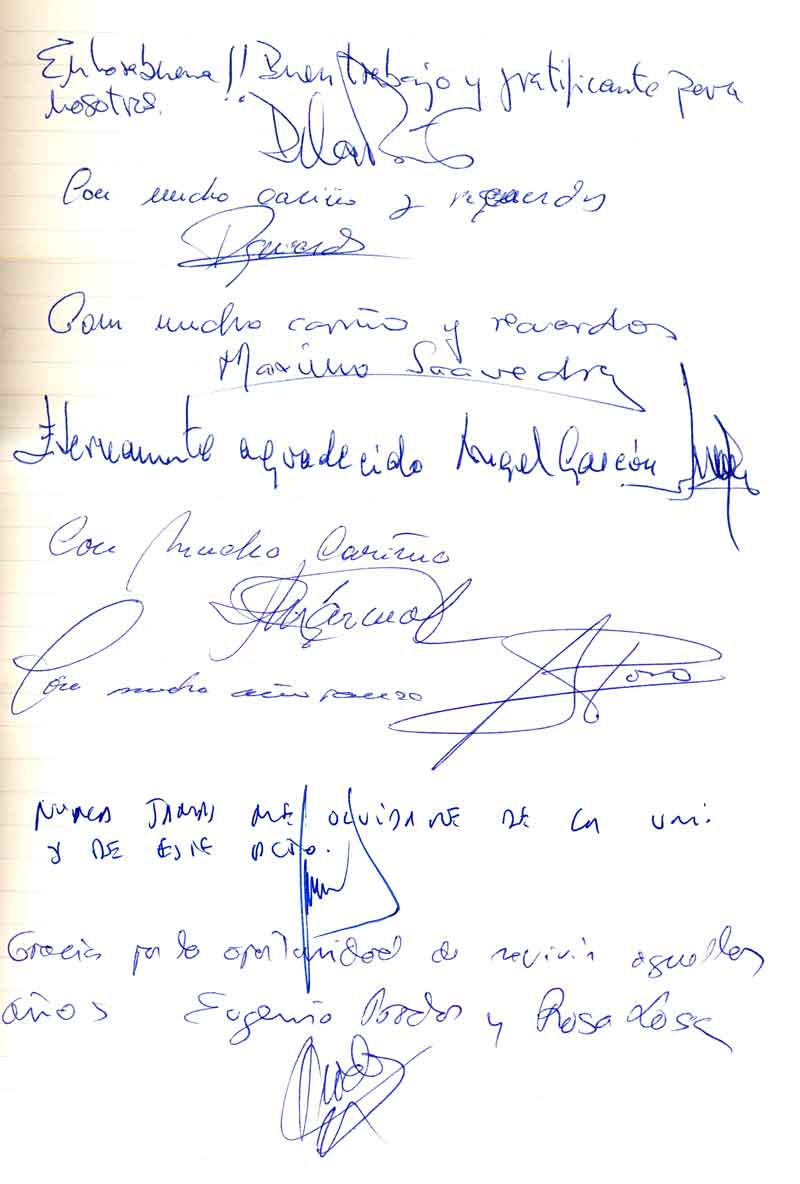 Enhorabuena!! Buen trabajo y gratificante para
nosotros.
Pilar
Con mucho cariño y recuerdos
Con mucho cariño y recuerdos
Maximo Saavedra
Eternamente agradecido Angel Gascón
Con mucho Cariño
Con mucho cariño
Toro
NUNCA JAMAS ME OLVIDARE DE LA UNI.
Y DE ESTE ACTO.
Gracias por la oportunidad de revivir aquellos
años Eugenio Prados y Rosa Losa